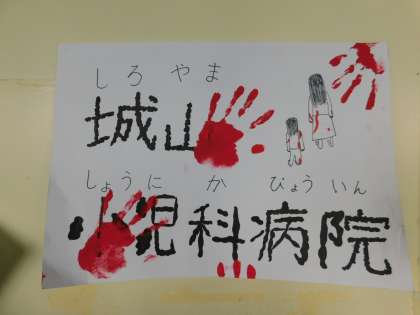 しろやま
城山
しょうにかびょういん
小児科病院